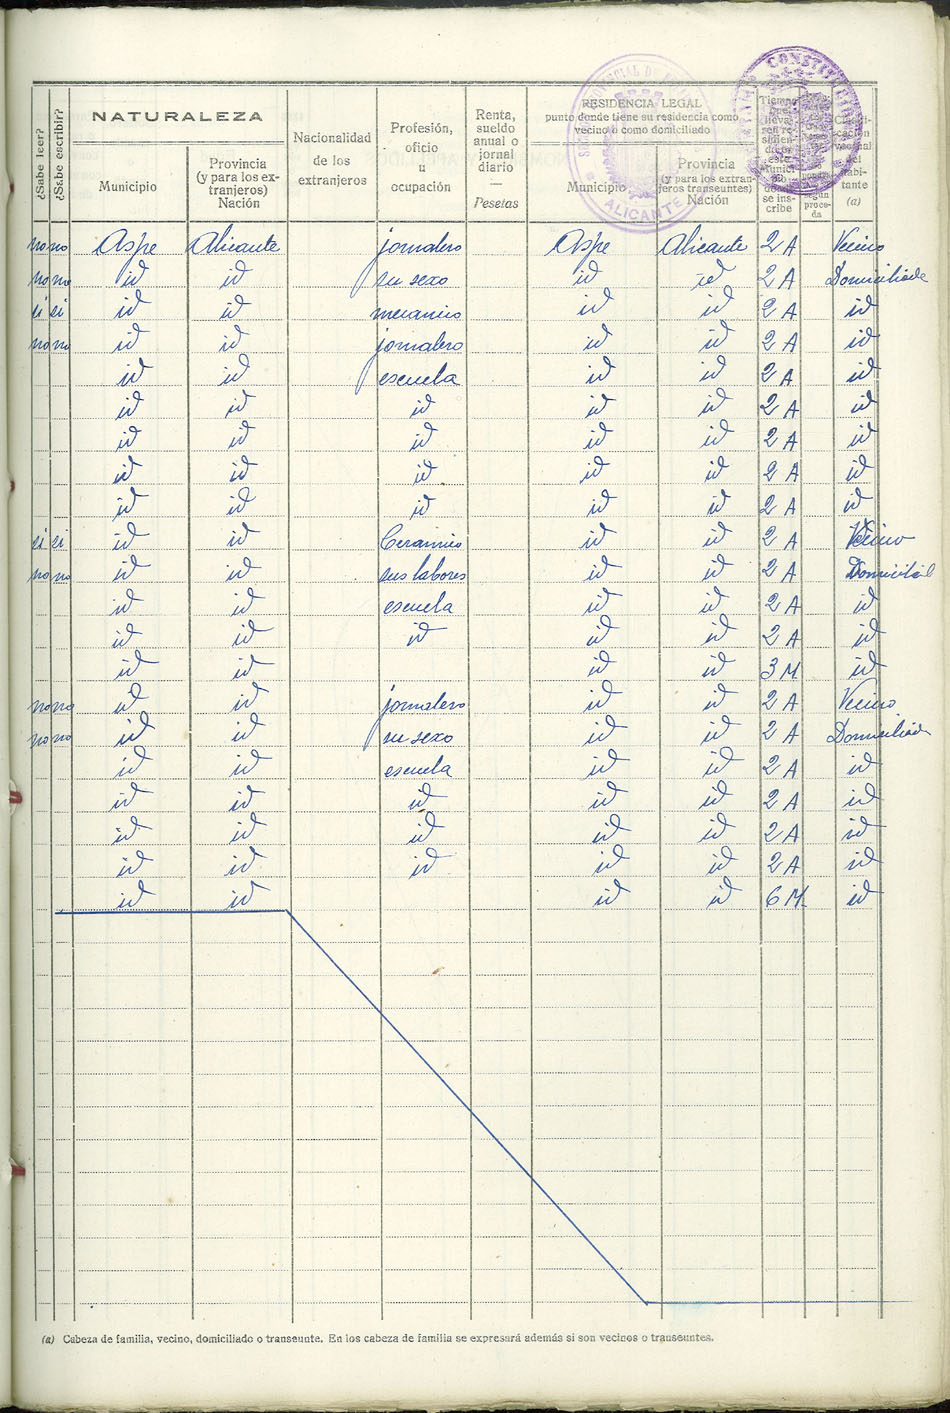 ¿Sabe leer?
¿Sabe escribir?
NATURALEZA
Municipio
Provincia
(y para los ex-
tranjeros)
Nación
Nacionalidad
de los
extranjeros
Profesión,
oficio
u
ocupación
Renta,
sueldo
anual o
jornal
diario
—
Pesetas
RESIDENCIA LEGAL
punto donde tiene su residencia como
vecino o como domiciliado
Municipio
Provincia
(y para los extran-
jeros transeuntes)
Nación
se ins-
cribe
según
proce-
da
(a)
ALICANTE
no no Aspe Alicante jornalero Aspe Alicante 2 A Vecino
no no id id su sexo id id 2 A Domiciliada
si si id id mecanico id id 2 A id
no no id id jornalero id id 2 A id
id id escuela id id 2 A id
id id id id id 2 A id
id id id id id 2 A id
id id id id id 2 A id
id id id id id 2 A id
si si id id Ceramico id id 2 A Vecino
no no id id sus labores id id 2 A
id id escuela id id 2 A id
id id id id id 2 A id
id id id id 3 M id
no no id id jornalero id id 2 A Vecino
no no id id su sexo id id 2 A Domiciliada
id id escuela id id 2 A id
id id id id id 2 A id
id id id id id 2 A id
id id id id id 2 A id
id id id id 6 M. id
(a) Cabeza de familia, vecino, domiciliado o transeunte. En los cabeza de familia se expresará además si son vecinos o transeuntes.